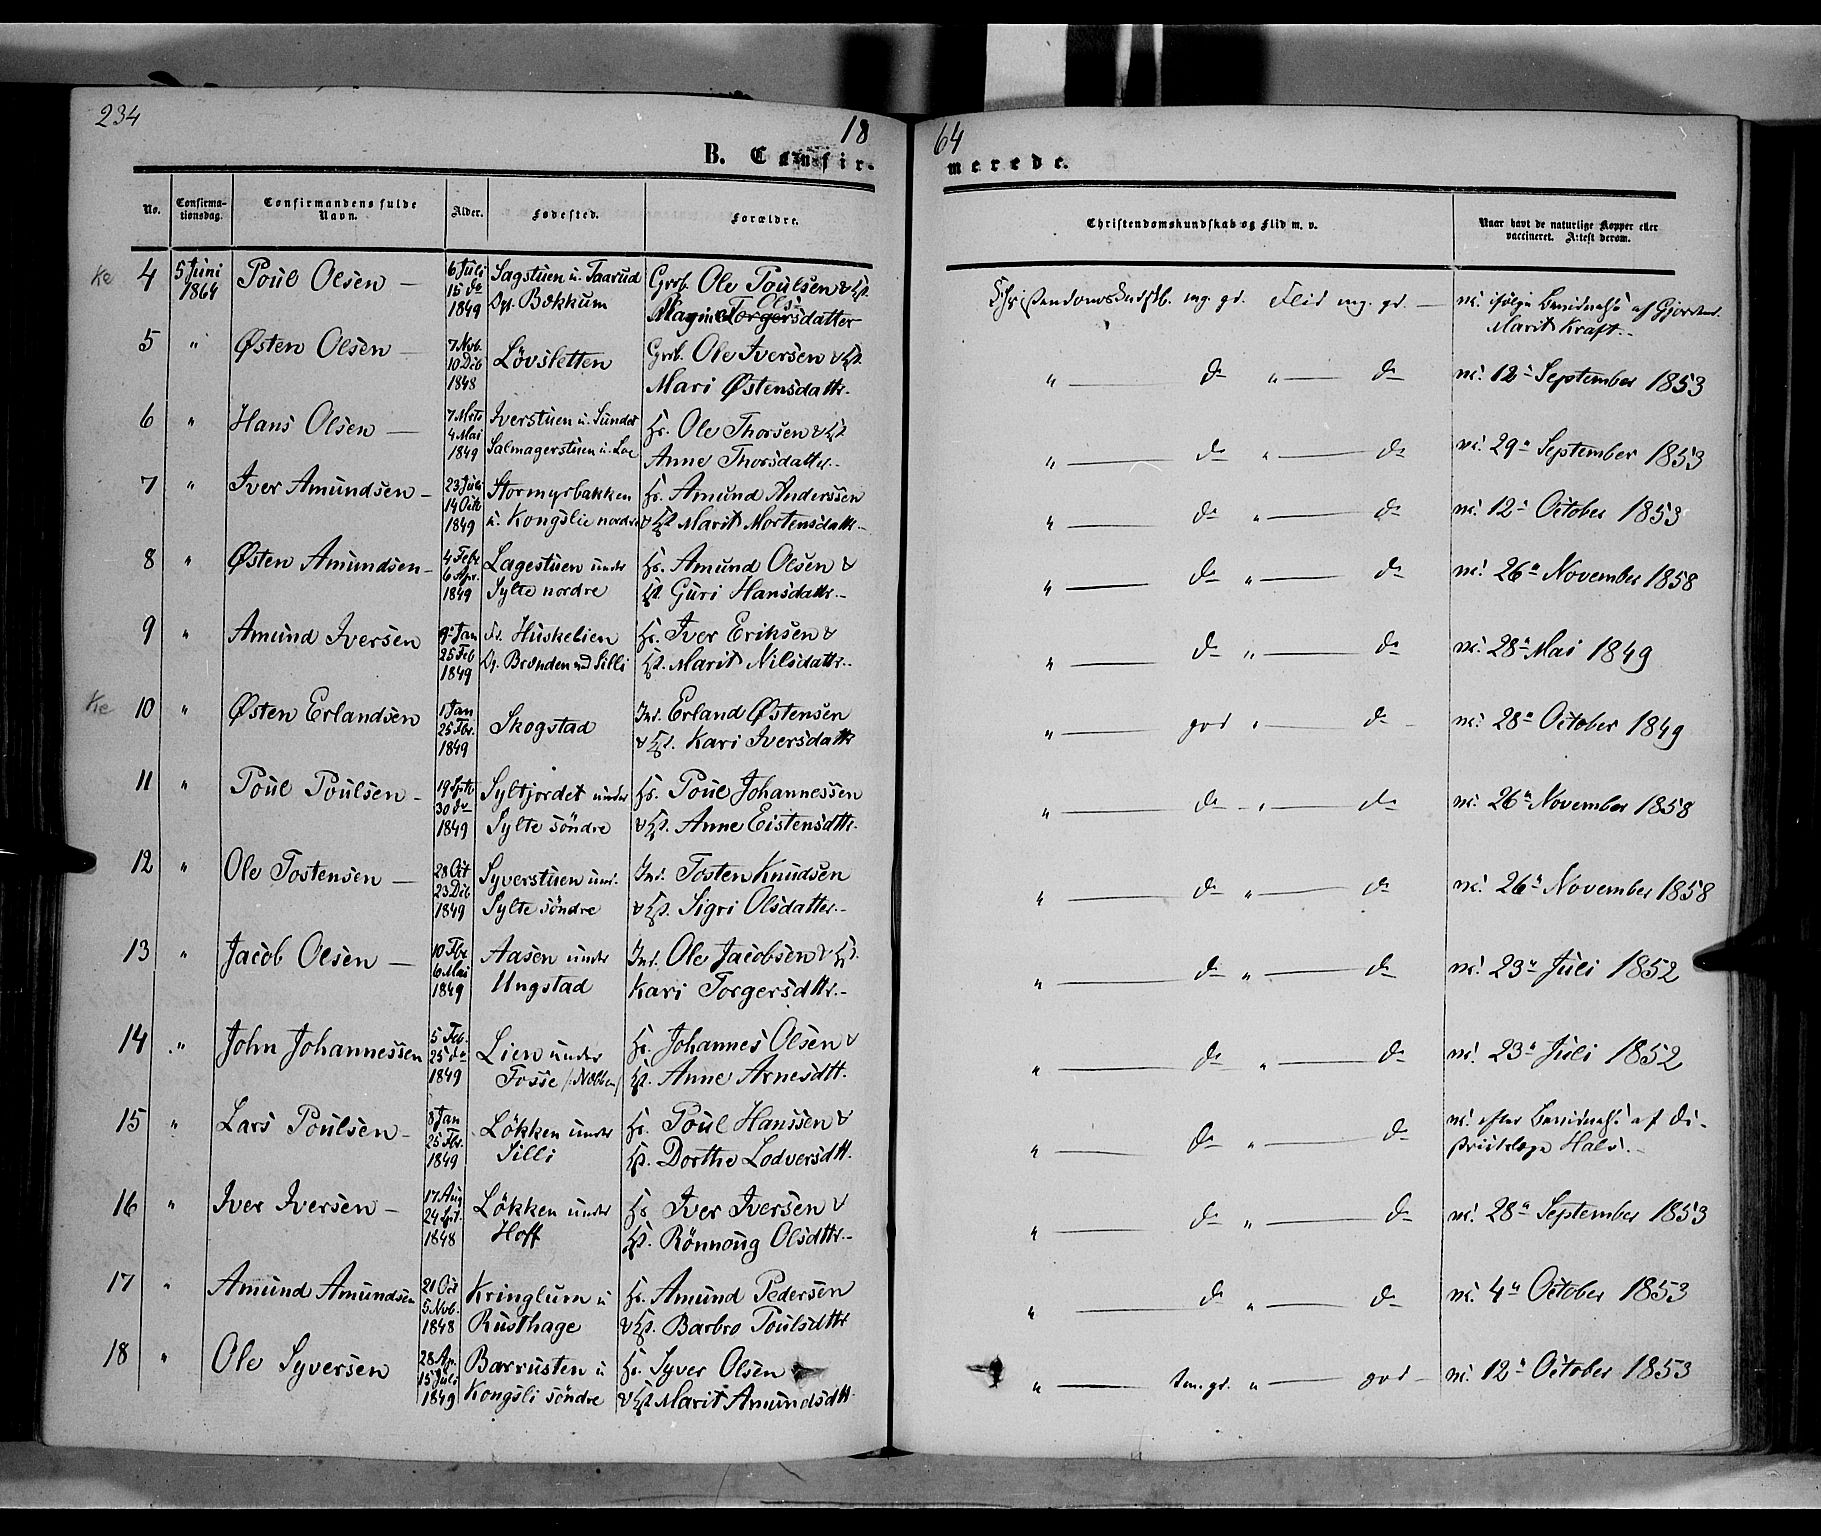 234
18 64
B. Confir- merede.
No. Confirma-tionsdag. Confirmandens fulde Navn. Alder. Fødested. Forældre. Christendomskundskab og Flid m. v. Naar havt de naturlige Kopper eller vaccineret. Attest derom.
Ke 4 5 Juni 1864 Poul Olsen — 6 Juli 15 do 1849 Sagstuen u. Taarud Dpt. Bækkum Grb. Ole Poulsen & H. Marie Torgersdatter Ols Christendomskundskb. mg. gd. Flid mg. gd. — vc. ifølge af Marit Kraft.
5 " Østen Olsen — 7 Nvb. 10 Dcb 1848 Lövsletten Grb. Ole Iversen & H. Mari Østensdattr. " — do " — do vc. 12te September 1853
6 " Hans Olsen — 7 Mrts 4 Mai 1849 Iverstuen u. Sundet Salmagerstuen u. Loe Hs. Ole Thorsen & H. Anne Thorsdatter. " — do " — do vc. 29de September 1853
7 " Iver Amundsen — 23 Juli 14 Octb 1849 Stormyrbakken u. Kongslie nordre Hs. Amund Anderssen & H. Marit Mortensdattr. " — do " — do vc. 12te October 1853
8 " Østen Amundsen — 4 Febr 6 Apr. 1849 Lagestuen under Sylte nordre Hs. Amund Olsen & H. Guri Hansdattr. " — do " — do vc. 26de November 1858
9 " Amund Iversen 9 Jan 25 Feb 1849 Huskelien Brænden und Silli Hs. Iver Eriksen & H. Marit Nilsdattr. " — do " — do vc. 28de Mai 1849
Ke 10 " Østen Erlandsen 1 Jan 25 Fbr. 1849 Skogstad Ind. Erland Østensen & H. Kari Iversdattr " — god " — do vc. 28de October 1849
11 " Poul Poulsen — 19 Sptb 30 do 1849 Syltjordet under Sylte söndre Hs. Poul Johannessen & H. Anne Eistensdttr. " — do " — do vc. 26de November 1858
12 " Ole Tostensen — 28 Oct 23 Dcb 1849 Syverstuen und. Sylte söndre Ind. Tosten Knudsen & H. Sigri Olsdatter. " — do " — do vc. 26de November 1858
13 " Jacob Olsen — 10 Fbr 6 Mai 1849 Aasen under Ungstad Ind. Ole Jacobsen & H. Kari Torgersdttr. " — do " — do vc. 23de Juli 1852
14 " John Johannessen 5 Feb. 25 do 1849 Lien under Fosse Hs. Johannes Olsen & H. Anne Arnesdtt. " — do " — do vc. 23de Juli 1852
15 " Lars Poulsen — 8 Jan 25 Fbr. 1849 Løkken under Silli Hs. Poul Hanssen & H. Dorthe Lodversdtt. " — do " — do vc. efter af Di- strictslæge Hals.
16 " Iver Iversen — 17 Aug 24 Spt. 1848 Løkken under Hoff Hs. Iver Iversen & H. Rönnoug Olsdttr. " — do " — do vc. 28de September 1853
17 " Amund Amundsen 21 Oct 5 Nvb. 1848 Kringlum u Rusthage Hs. Amund Pedersen & H. Barbro Poulsdttr " — do " — do vc. 4de October 1853
18 " Ole Syversen 28 Apr. 15 Juli 1849 Barrusten u Kongsli söndre Hs. Syver Olsen & H. Marit Amundsdtt. " — tm. gd. " — god — vc. 12te October 1853